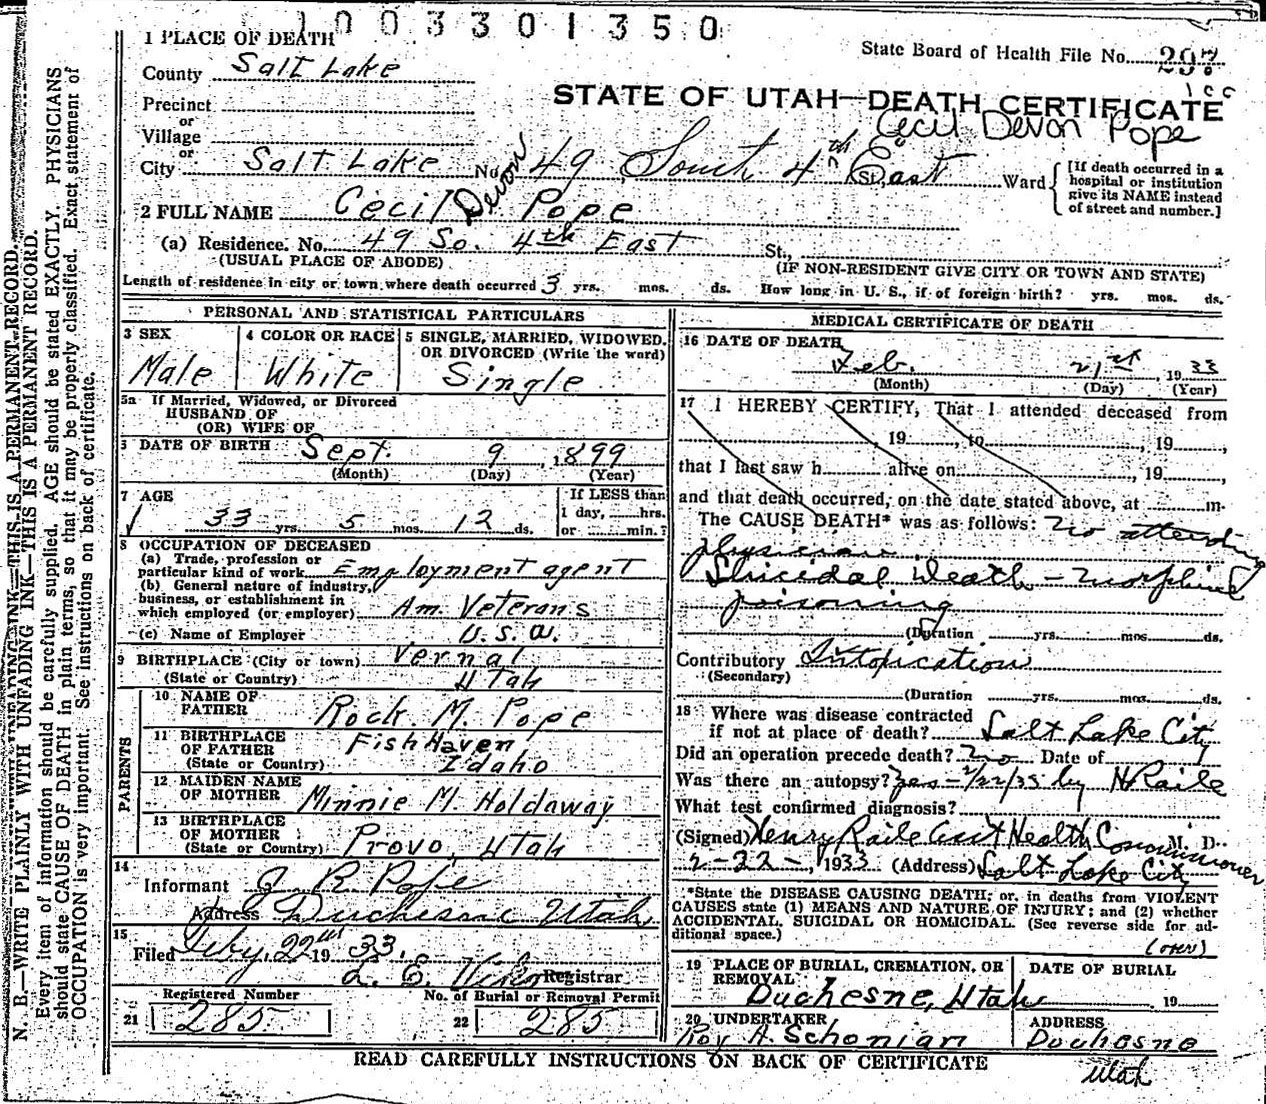 1003301350
1 PLACE OF DEATH
State Board of Health File No. 297
County Salt Lake
STATE OF UTAH—DEATH CERTIFICATE
Precinct
or
Village
Cecil Devon Pope
or
City Salt Lake No. 49 South 4th East St., Ward
[If death occurred in a hospital or institution give its NAME instead of street and number.]
2 FULL NAME Cecil Devon Pope
(a) Residence. No. 49 So. 4th East St.,
(USUAL PLACE OF ABODE) (IF NON-RESIDENT GIVE CITY OR TOWN AND STATE)
Length of residence in city or town where death occurred 3 yrs. mos. ds. How long in U. S., if of foreign birth? yrs. mos. ds.
PERSONAL AND STATISTICAL PARTICULARS
3 SEX
Male
4 COLOR OR RACE
White
5 SINGLE, MARRIED, WIDOWED, OR DIVORCED (Write the word)
Single
5a If Married, Widowed, or Divorced
HUSBAND OF
(OR) WIFE OF
6 DATE OF BIRTH Sept. 9, 1899
(Month) (Day) (Year)
7 AGE
33 yrs. 5 mos. 12 ds.
If LESS than
1 day, hrs.
or min.?
8 OCCUPATION OF DECEASED
(a) Trade, profession or
particular kind of work Employment agent
(b) General nature of industry,
business, or establishment in
which employed (or employer) Am. Veterans
(c) Name of Employer U.S.A.
9 BIRTHPLACE (City or town) Vernal
(State or Country) Utah
PARENTS
10 NAME OF
FATHER Rock M. Pope
11 BIRTHPLACE
OF FATHER Fish Haven
(State or Country) Idaho
12 MAIDEN NAME
OF MOTHER Minnie M. Holdaway
13 BIRTHPLACE
OF MOTHER
(State or Country) Provo, Utah
14
Informant J. R. Pope
Address Duchesne Utah
15
Filed Feby. 22nd 1933.
L. E. Registrar
Registered Number
21 285
No. of Burial or Removal Permit
22 285
MEDICAL CERTIFICATE OF DEATH
16 DATE OF DEATH
Feb. 21st, 1933
(Month) (Day) (Year)
17 I HEREBY CERTIFY, That I attended deceased from
, 19 , to , 19 ,
that I last saw h alive on , 19 ,
and that death occurred, on the date stated above, at m.
The CAUSE DEATH* was as follows: No attending
physician
Suicidal Death - Morphine
poisoning
(Duration yrs. mos. ds.
Contributory Intoxication
(Secondary)
(Duration yrs. mos. ds.
18 Where was disease contracted
if not at place of death? Salt Lake City
Did an operation precede death? No Date of
Was there an autopsy? Yes - 2/22/33 by H Raile
What test confirmed diagnosis?
(Signed) Henry Raile Asst Health Commissioner M. D.
2-22-, 1933 (Address) Salt Lake City
*State the DISEASE CAUSING DEATH; or, in deaths from VIOLENT
CAUSES state (1) MEANS AND NATURE OF INJURY; and (2) whether
ACCIDENTAL, SUICIDAL OR HOMICIDAL. (See reverse side for additional space.)
(over)
19 PLACE OF BURIAL, CREMATION, OR
REMOVAL
Duchesne, Utah
DATE OF BURIAL
, 19
20 UNDERTAKER
Roy A. Schonian
ADDRESS
Duchesne
Utah
READ CAREFULLY INSTRUCTIONS ON BACK OF CERTIFICATE
N. B.—WRITE PLAINLY WITH UNFADING INK—THIS IS A PERMANENT RECORD.
Every item of information should be carefully supplied. AGE should be stated EXACTLY. PHYSICIANS
should state CAUSE OF DEATH in plain terms, so that it may be properly classified. Exact statement of
OCCUPATION is very important. See instructions on back of certificate.